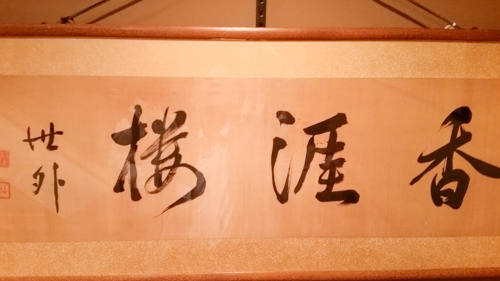 香涯楼
世外